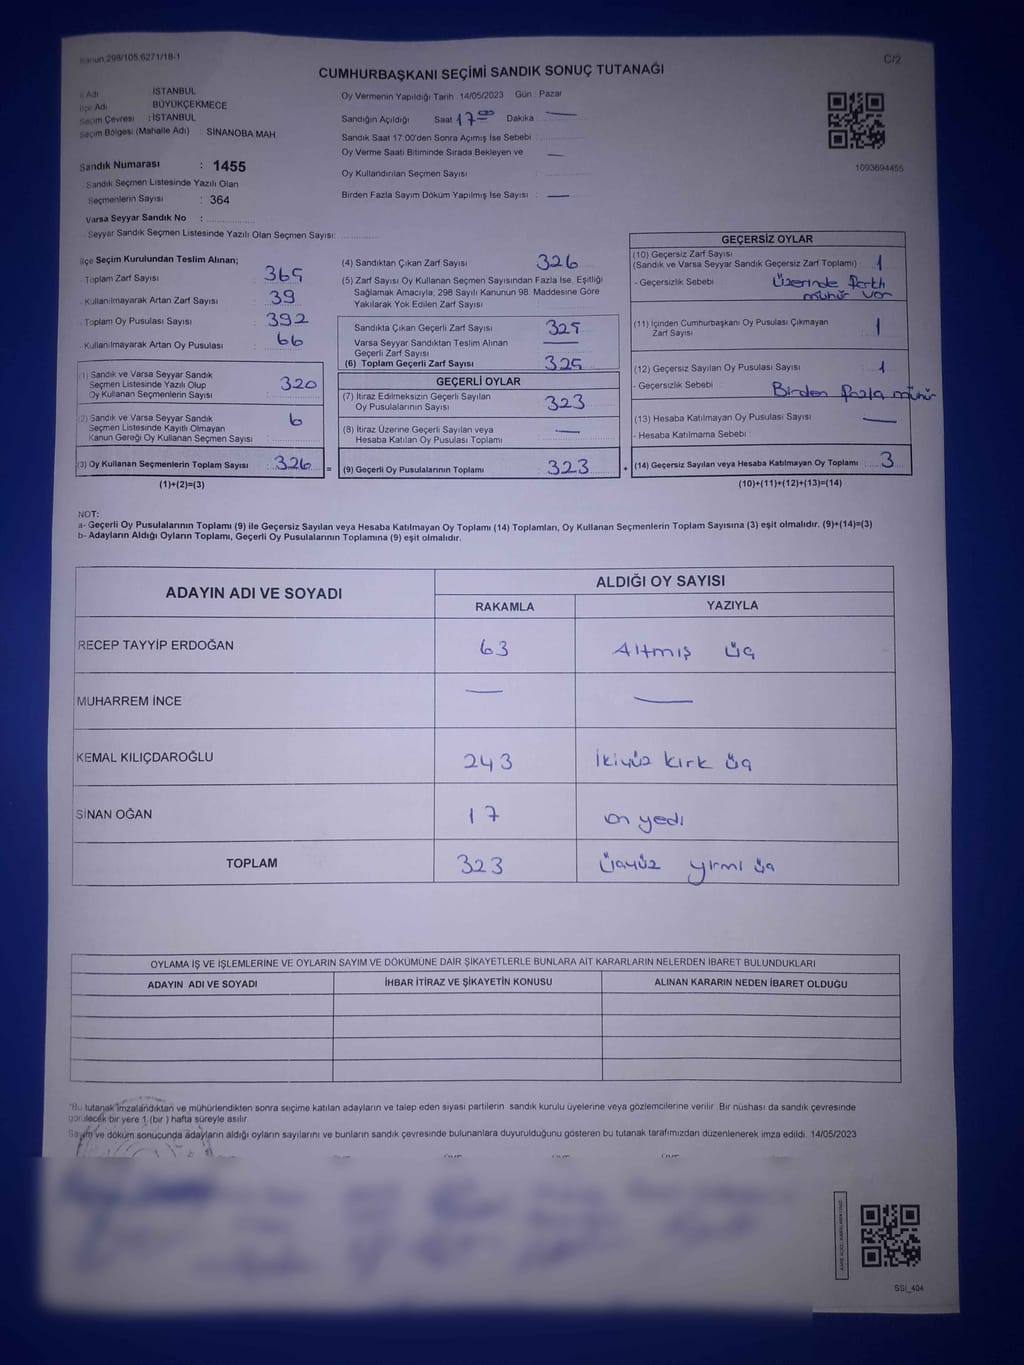 Kanun 298/105.6271/18-1
C/2
CUMHURBAŞKANI SEÇİMİ SANDIK SONUÇ TUTANAĞI
İl Adı İSTANBUL
İlçe Adı BÜYÜKÇEKMECE
Seçim Çevresi : İSTANBUL
Seçim Bölgesi (Mahalle Adı) : SİNANOBA MAH.
Sandık Numarası : 1455
Sandık Seçmen Listesinde Yazılı Olan
Seçmenlerin Sayısı : 364
Varsa Seyyar Sandık No :
Seyyar Sandık Seçmen Listesinde Yazılı Olan Seçmen Sayısı:
Oy Vermenin Yapıldığı Tarih : 14/05/2023 Gün : Pazar
Sandığın Açıldığı Saat 17:00 Dakika : —
Sandık Saat 17:00'den Sonra Açımış İse Sebebi :
Oy Verme Saati Bitiminde Sırada Bekleyen ve —
Oy Kullandırılan Seçmen Sayısı :
Birden Fazla Sayım Döküm Yapılmış İse Sayısı : —
1093694455
İlçe Seçim Kurulundan Teslim Alınan;
- Toplam Zarf Sayısı : 365
- Kullanılmayarak Artan Zarf Sayısı : 39
- Toplam Oy Pusulası Sayısı : 392
- Kullanılmayarak Artan Oy Pusulası : 66
(1) Sandık ve Varsa Seyyar Sandık
Seçmen Listesinde Yazılı Olup
Oy Kullanan Seçmenlerin Sayısı : 320
(2) Sandık ve Varsa Seyyar Sandık
Seçmen Listesinde Kayıtlı Olmayan
Kanun Gereği Oy Kullanan Seçmen Sayısı : 6
(3) Oy Kullanan Seçmenlerin Toplam Sayısı : 326
(1)+(2)=(3)
(4) Sandıktan Çıkan Zarf Sayısı : 326
(5) Zarf Sayısı Oy Kullanan Seçmen Sayısından Fazla İse, Eşitliği
Sağlamak Amacıyla; 298 Sayılı Kanunun 98. Maddesine Göre
Yakılarak Yok Edilen Zarf Sayısı :
Sandıkta Çıkan Geçerli Zarf Sayısı : 325
Varsa Seyyar Sandıktan Teslim Alınan
Geçerli Zarf Sayısı —
(6) Toplam Geçerli Zarf Sayısı : 325
GEÇERLİ OYLAR
(7) İtiraz Edilmeksizin Geçerli Sayılan
Oy Pusulalarının Sayısı : 323
(8) İtiraz Üzerine Geçerli Sayılan veya
Hesaba Katılan Oy Pusulası Toplamı : —
= (9) Geçerli Oy Pusulalarının Toplamı : 323
GEÇERSİZ OYLAR
(10) Geçersiz Zarf Sayısı
(Sandık ve Varsa Seyyar Sandık Geçersiz Zarf Toplamı) : 1
- Geçersizlik Sebebi : Üzerinde farklı
mühür var
(11) İçinden Cumhurbaşkanı Oy Pusulası Çıkmayan
Zarf Sayısı : 1
(12) Geçersiz Sayılan Oy Pusulası Sayısı : 1
- Geçersizlik Sebebi : Birden fazla mühür
(13) Hesaba Katılmayan Oy Pusulası Sayısı : —
- Hesaba Katılmama Sebebi :
+ (14) Geçersiz Sayılan veya Hesaba Katılmayan Oy Toplamı : 3
(10)+(11)+(12)+(13)=(14)
NOT:
a- Geçerli Oy Pusulalarının Toplamı (9) ile Geçersiz Sayılan veya Hesaba Katılmayan Oy Toplamı (14) Toplamları, Oy Kullanan Seçmenlerin Toplam Sayısına (3) eşit olmalıdır. (9)+(14)=(3)
b- Adayların Aldığı Oyların Toplamı, Geçerli Oy Pusulalarının Toplamına (9) eşit olmalıdır.
ADAYIN ADI VE SOYADI ALDIĞI OY SAYISI
RAKAMLA YAZIYLA
RECEP TAYYİP ERDOĞAN 63 Altmış üç
MUHARREM İNCE — —
KEMAL KILIÇDAROĞLU 243 ikiyüz kırk üç
SİNAN OĞAN 17 on yedi
TOPLAM 323 üçyüz yirmi üç
OYLAMA İŞ VE İŞLEMLERİNE VE OYLARIN SAYIM VE DÖKÜMÜNE DAİR ŞİKAYETLERLE BUNLARA AİT KARARLARIN NELERDEN İBARET BULUNDUKLARI
ADAYIN ADI VE SOYADI İHBAR İTİRAZ VE ŞİKAYETİN KONUSU ALINAN KARARIN NEDEN İBARET OLDUĞU
*Bu tutanak imzalandıktan ve mühürlendikten sonra seçime katılan adayların ve talep eden siyasi partilerin sandık kurulu üyelerine veya gözlemcilerine verilir. Bir nüshası da sandık çevresinde
görülecek bir yere 1 (bir) hafta süreyle asılır.
Sayım ve döküm sonucunda adayların aldığı oyların sayılarını ve bunların sandık çevresinde bulunanlara duyurulduğunu gösteren bu tutanak tarafımızdan düzenlenerek imza edildi. 14/05/2023
SSI_404